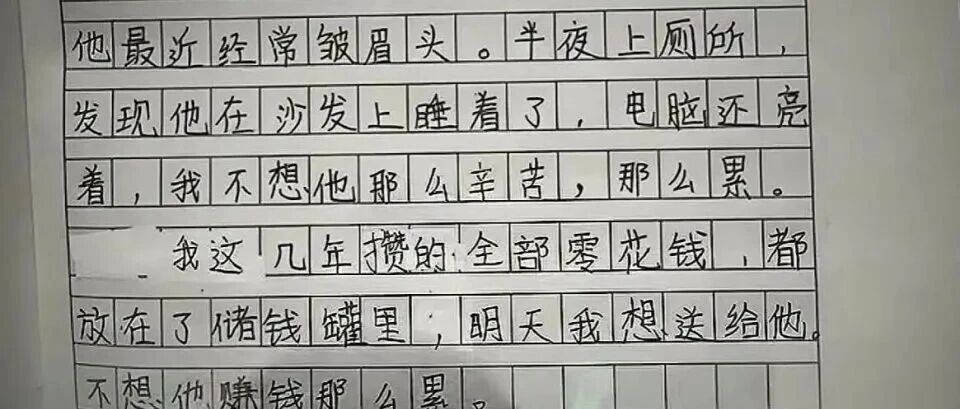 他最近经常皱眉头。半夜上厕所，
发现他在沙发上睡着了，电脑还亮
着，我不想他那么辛苦，那么累。
我这几年攒的全部零花钱，都
放在了储钱罐里，明天我想送给他。
不想他赚钱那么累。